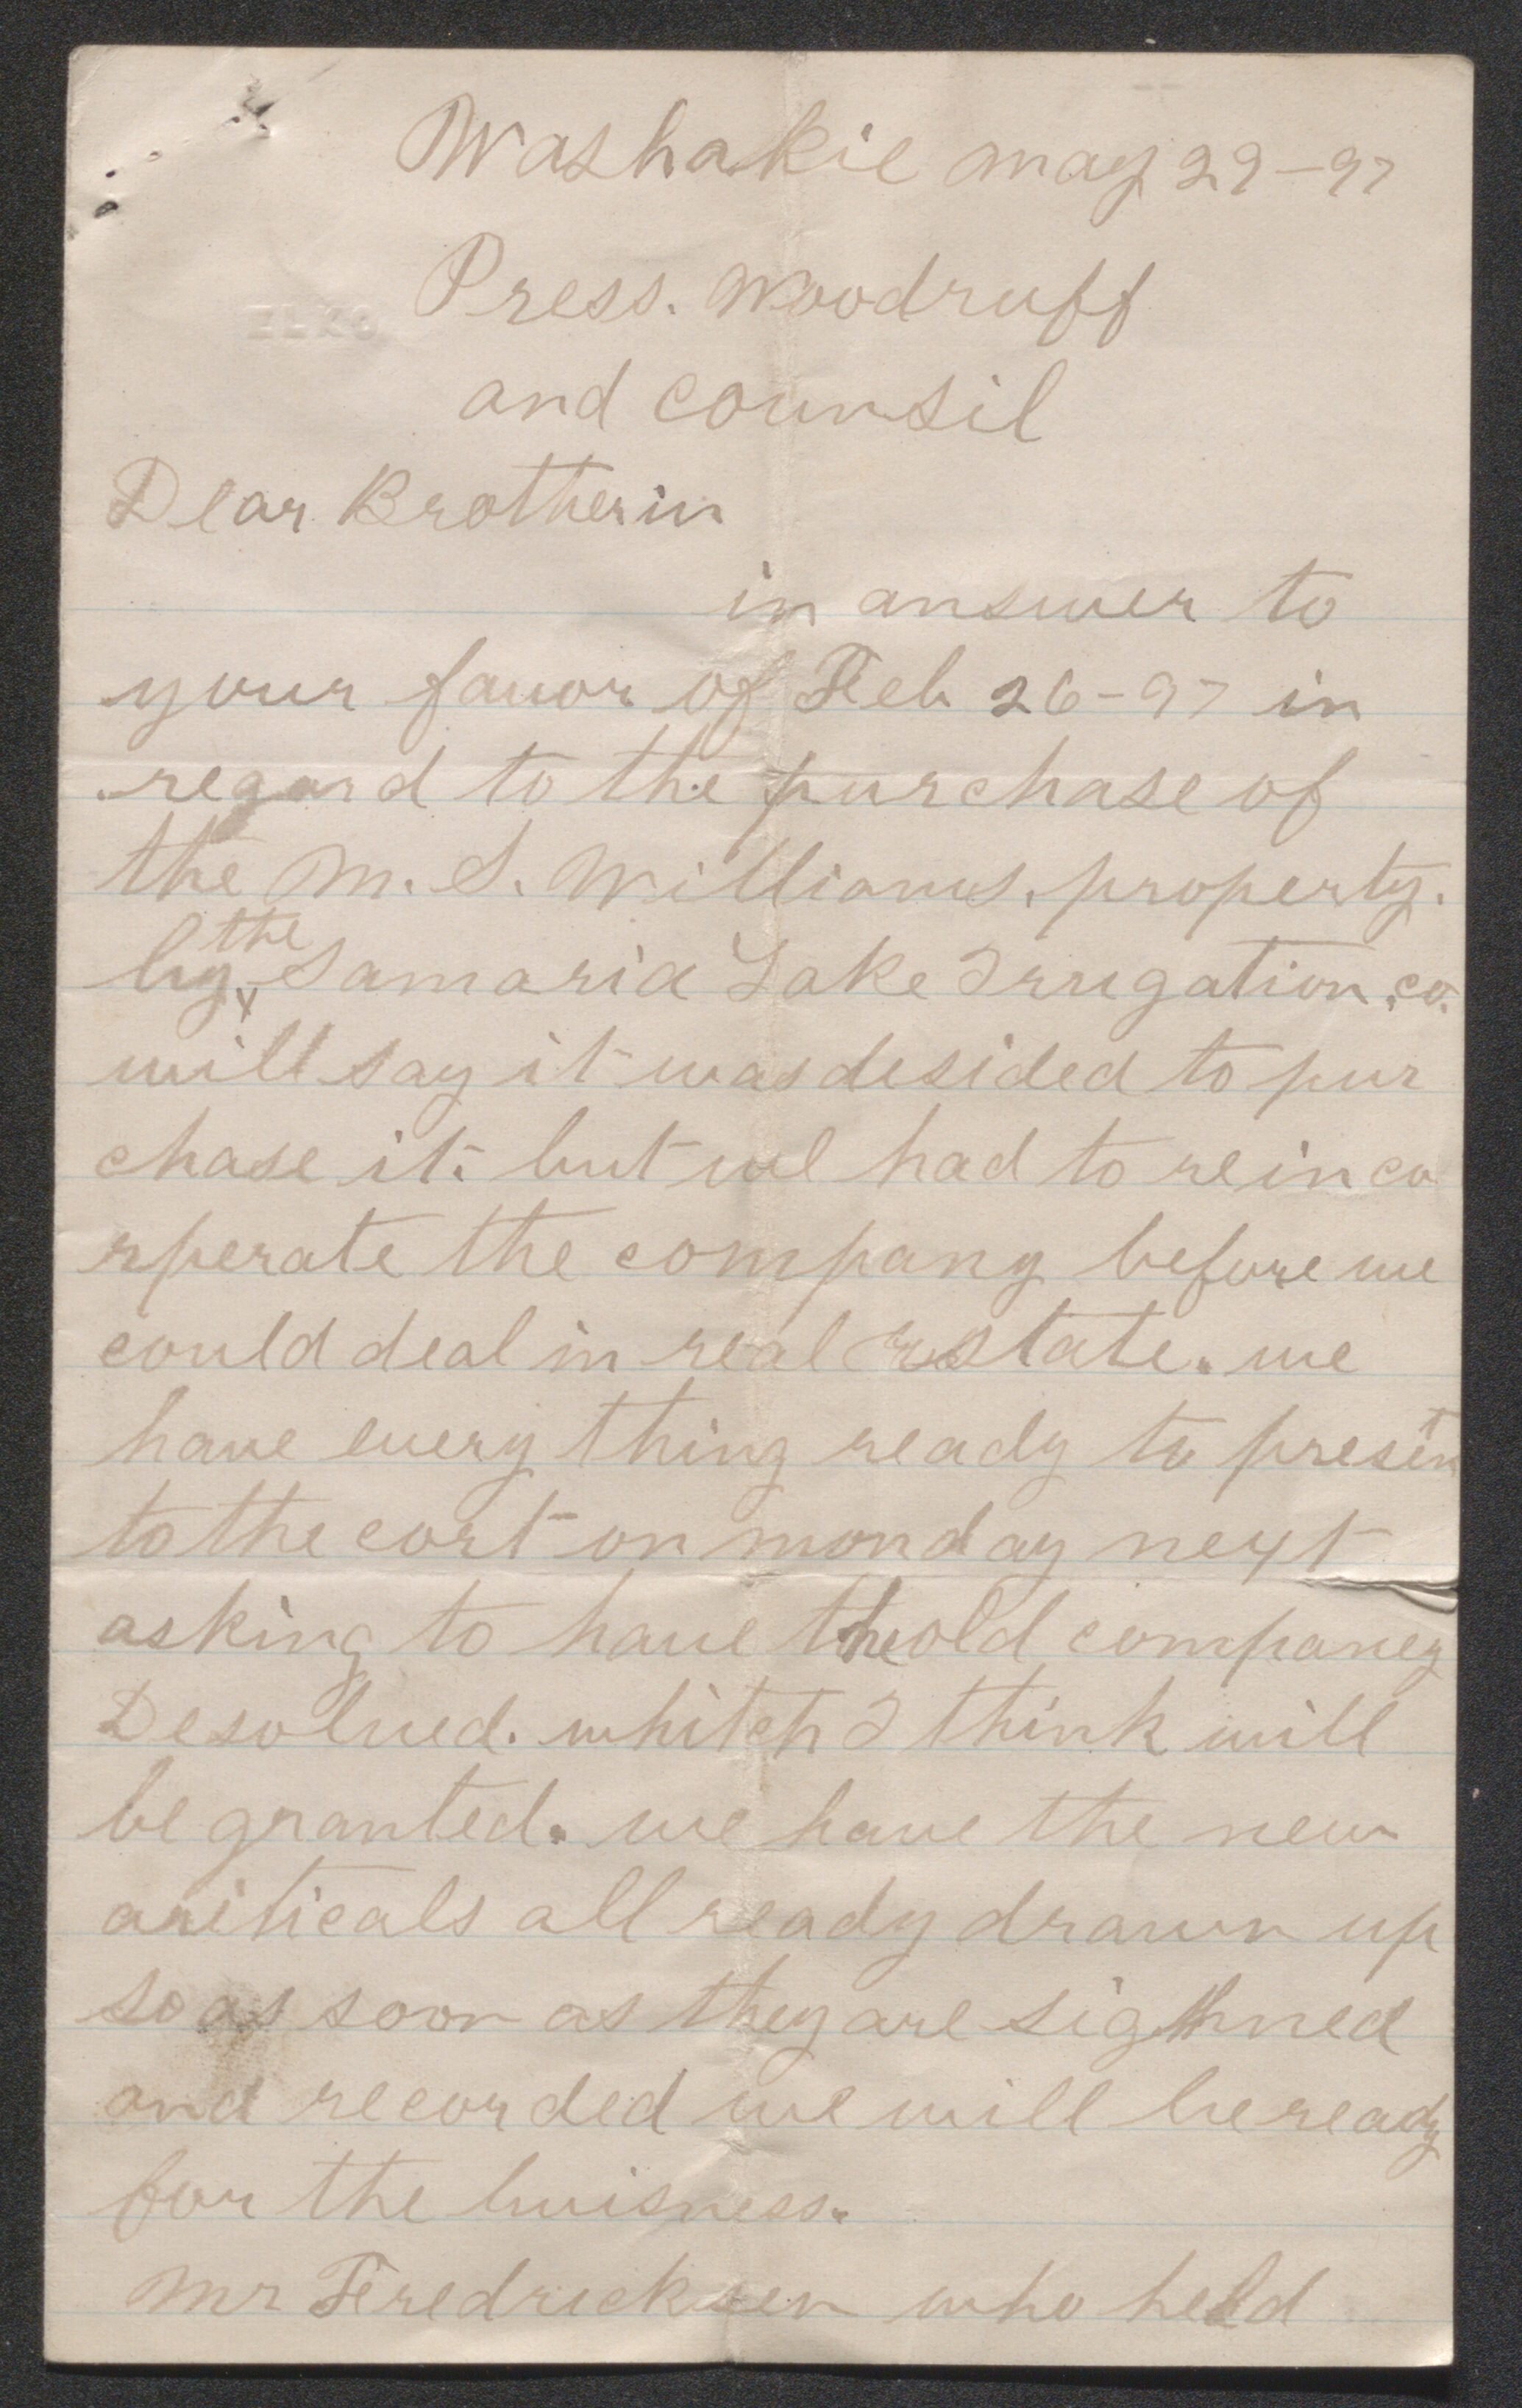 Washakie may 29-97
Press. Woodruff
and counsil
Dear Brotherin
in answer to
your favor of Feb 26-97 in
regard to the purchase of
the M. S. Williams. property.
by the Samaria Lake Irrugation. co.
will say it was desided to pur
chase it. but we had to reinco
rperate the company before we
could deal in real estate. we
have every thing ready to present
to the cort on monday next
asking to have the old companey
Desolved. whitch I think will
be granted. we have the new
ariticals all ready drawn up
so as soon as they are sighned
and recorded we will be ready
for the buisness.
Mr Fredricksen who held